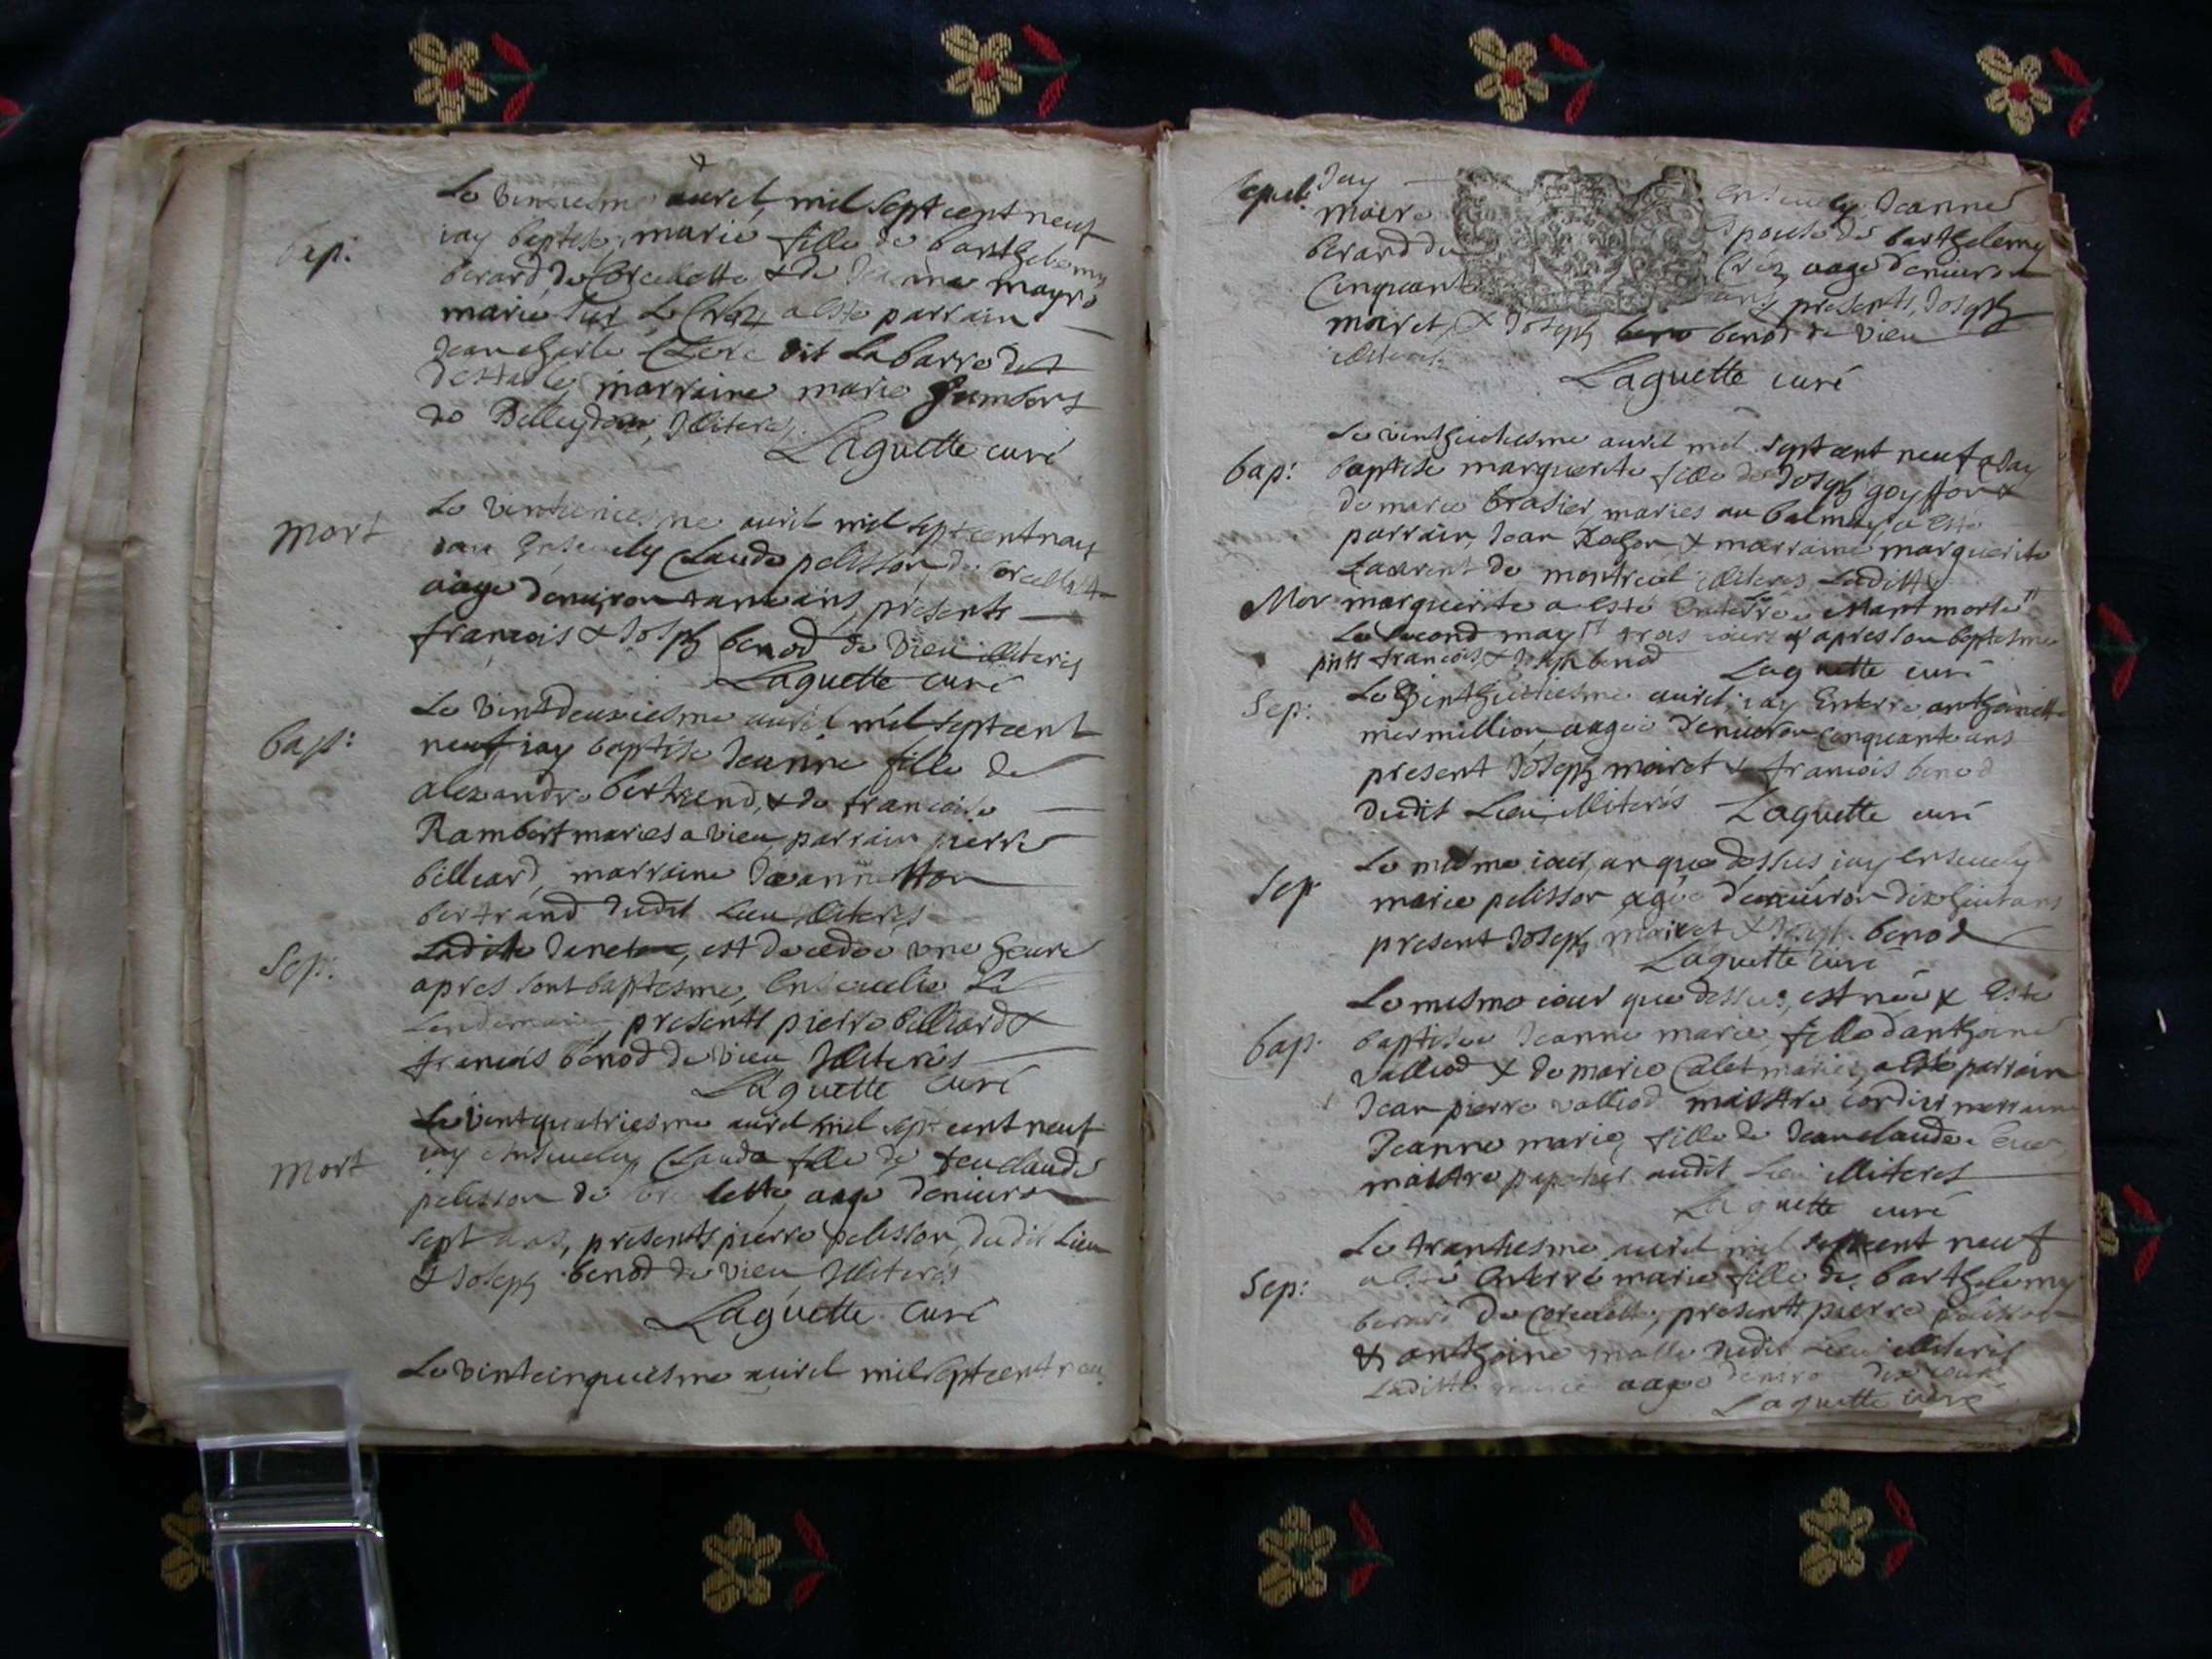 bap:
Le vintiesme avril mil sept cent neuf
iay baptise marie fille de barthelemy
berard de Corcelette & de Jeanne mayre
maries sur Le Crez a este parrain
Jean Clerc dit Labarre de
marraine marie humbert
de Belleydoux, Illiteres
Laguette curé
mort
Le avril mil sept cent nauf
iay Ensevely Claude pelisson de Corcelette
aage denviron ans, presents
francois & Joseph benod de Vieu illiteres
Laguette curé
bap:
Le Vintdeuxiesme avril mil sept cent
neuf, iay baptise Jeanne fille de
alexandre bertrend, & de francoise
Rambert maries a vieu, parrain pierre
billiard, marraine Jeannetton
bertrand dudit Lieu Illiteres
Sep:
Ladite est decedee une heure
apres sont baptesme, Ensevelie Le
Lendemain, presents pierre billiard &
francois benod de vieu Illiteres
Laguette Curé
mort
Le Vintquatriesme avril mil sept cent neuf
iay Ensevely Claude fille de feu claude
pelisson de Corcelette, aage denviron
sept ans, presents pierre pelisson, du dit Lieu
& Joseph benod de vieu Illiteres
Laguette Curé
Le vintcinquiesme avril mil sept cent neu
Sepul: Jay Ensevely Jeanne
maire Epouse de barthelemy
berard du Crez aage denviron
Cinquante ans presents, Joseph
moiret, & Joseph benod de vieu
illiteres
Laguette curé
bap:
Le vinthuitiesme avril mil sept cent neuf Jay
baptise marguerite fille de Joseph goyffon &
de marie brasier maries au balmay, a esté
parrain, Jean & marraine marguerite
Laurent de montreal illiteres Laditte
Mor marguerite a esté Enterree Etant morte
Le second may trois iours apres son baptesme
pnts francois & Joseph benod Laguette curé
Sep:
Le Vinthuitiesme avril, iay Enterre anthoinette
mermillion, aagee denviron Cinquante ans
present Joseph moiret & francois benod
dudit Lieu illiteres Laguette curé
Sep
Le mesme iour, an que dessus iay Ensevely
marie pelisson agée denviron dix huit ans
present Joseph moiret & Joseph benod
Laguette curé
bap:
Le mesme iour que dessus, est née & Esté
baptisee Jeanne marie fille danthoine
valliod & de marie Calet maries, a Esté parrain
Jean pierre valliod maistre cordier marraine
Jeanne marie, fille de Jean claude
maistre papetier audit Lieu illiteres
Laguette curé
Sep:
Le trantiesme avril mil sept cent neuf
a esté Enterré marie fille de barthelemy
berard de Corcelette, presents pierre pelisson
& anthoine dudit Lieu illiteres
Laditte marie aagee denviron dix iours
Laguette curé